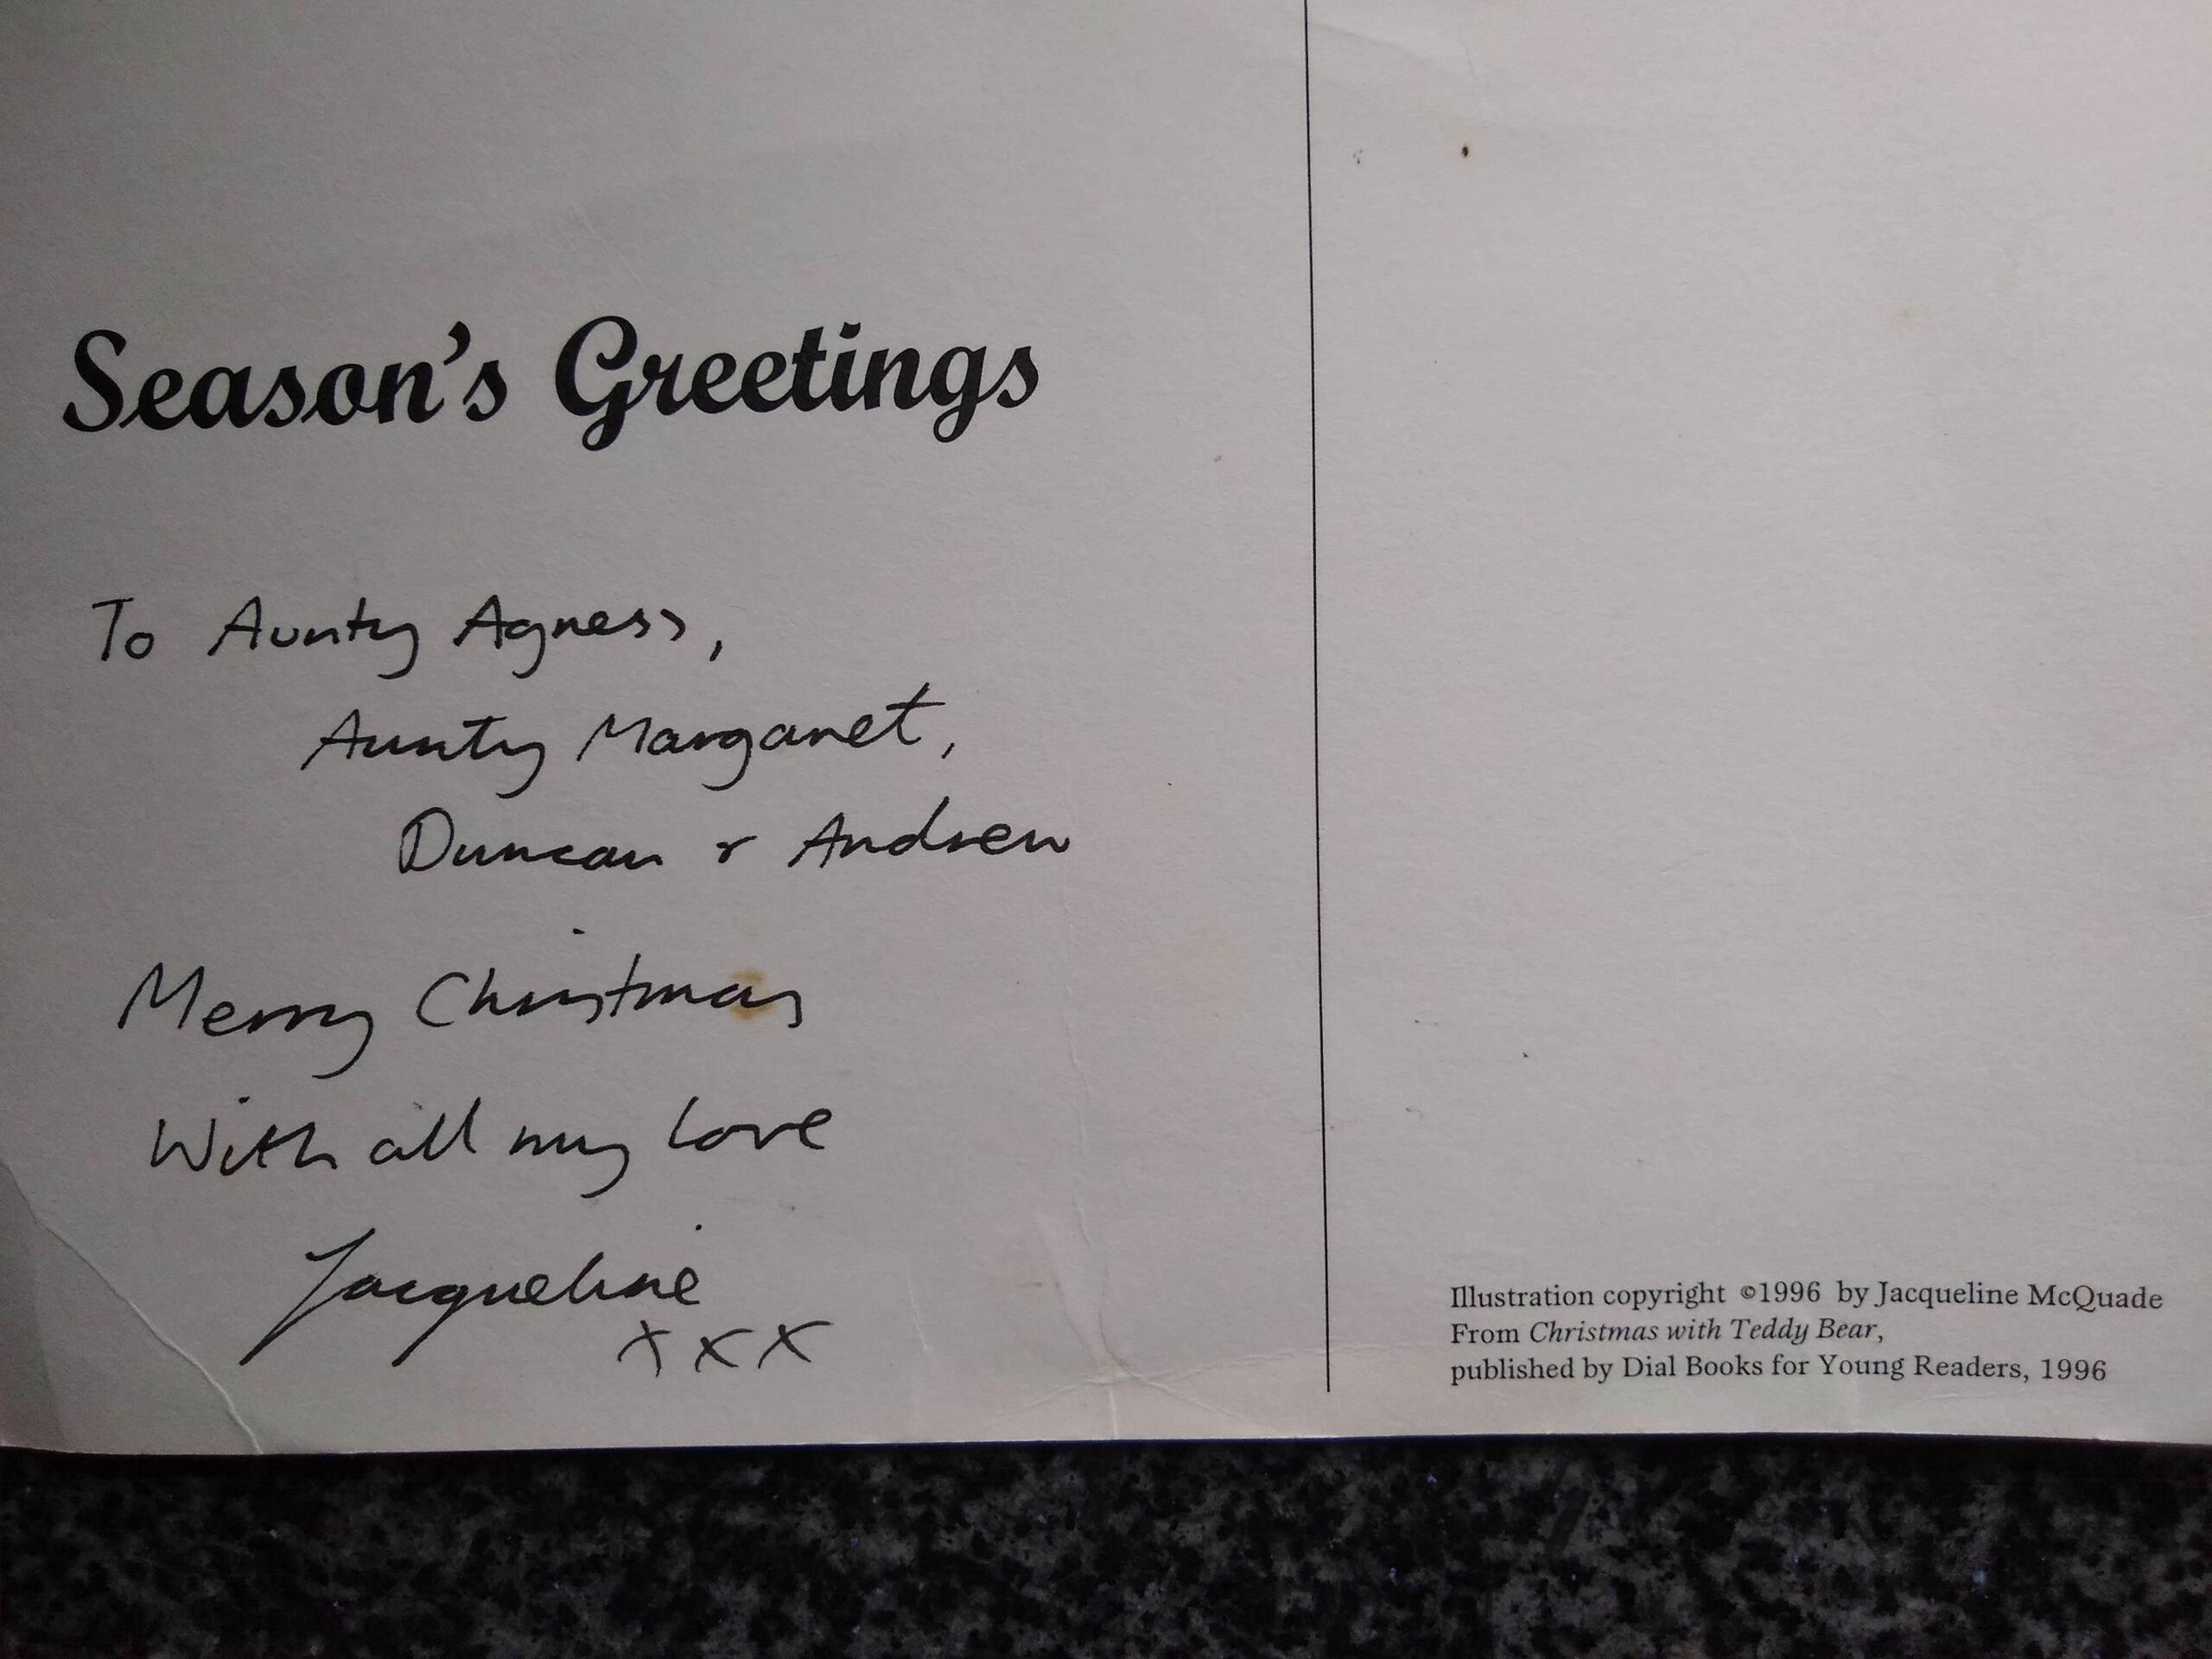 Season's Greetings
To Aunty Agness,
Aunty Margaret,
Duncan & Andrew
Merry Christmas
With all my love
Jacqueline
xxx
Illustration copyright ©1996 by Jacqueline McQuade
From Christmas with Teddy Bear,
published by Dial Books for Young Readers, 1996